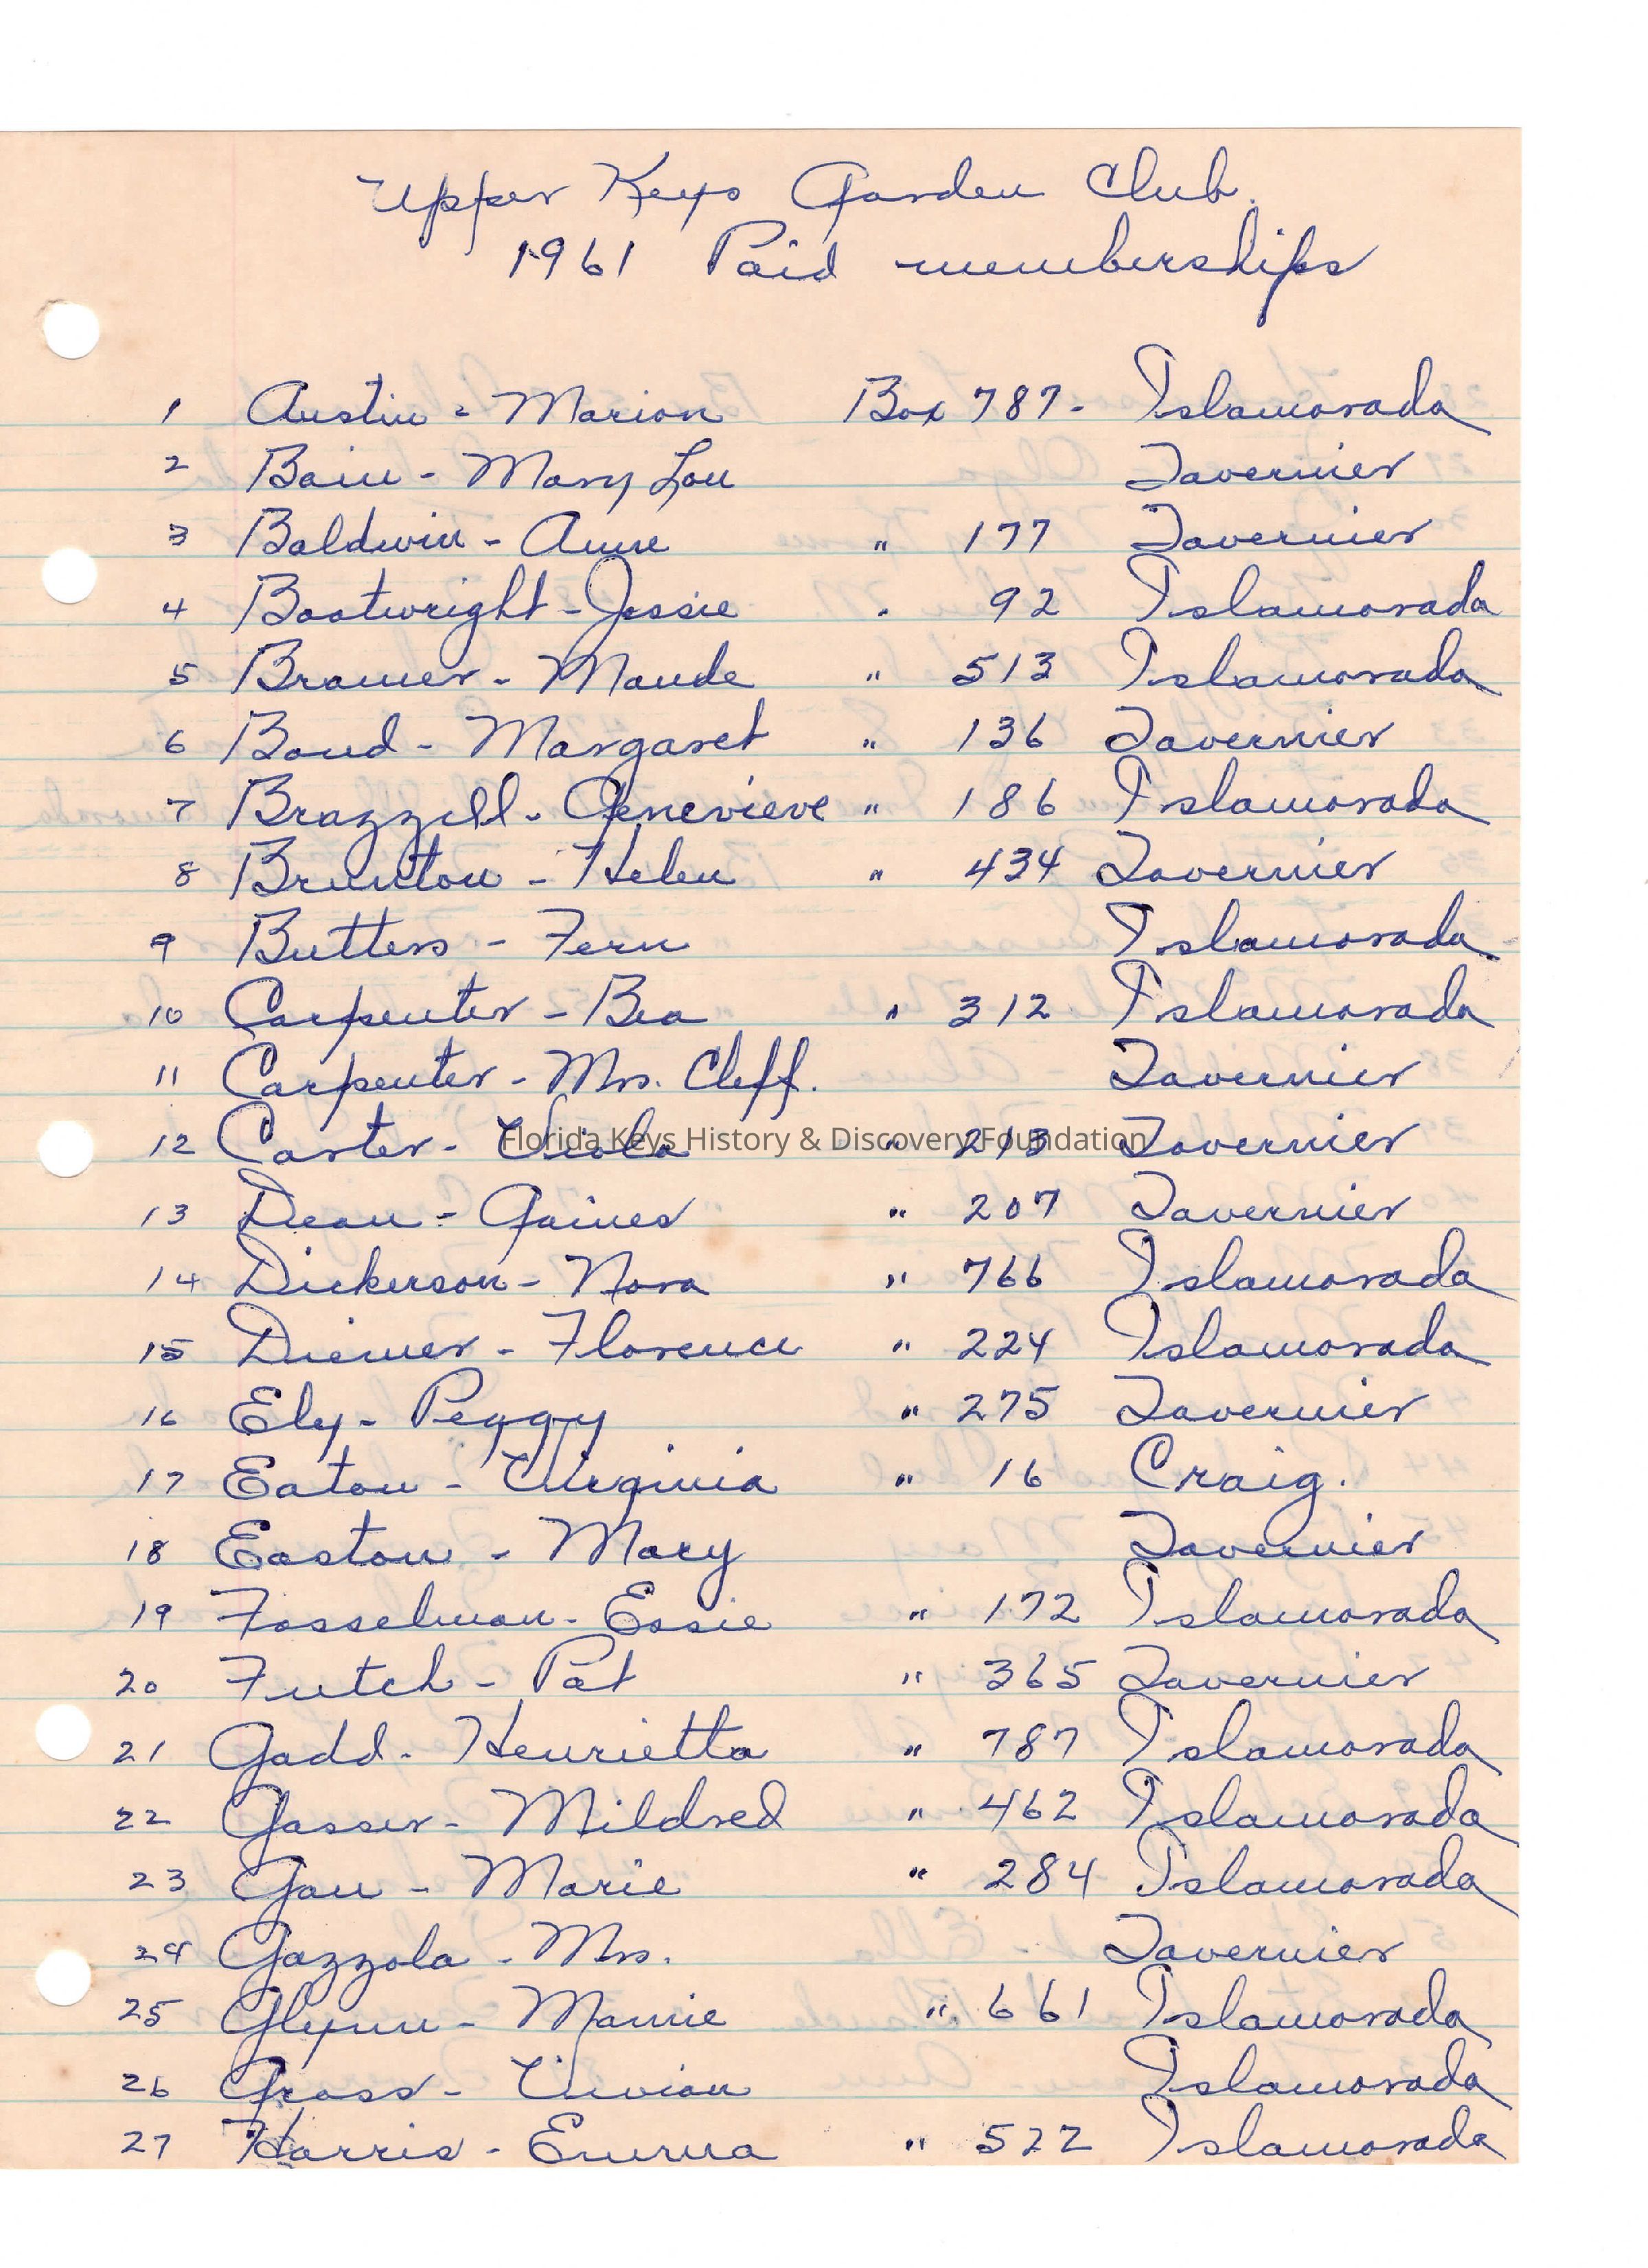 Upper Keys Garden Club.
1961 Paid memberships
1 Austin - Marion Box 787 - Islamorada
2 Bain - Mary Lou Tavernier
3 Baldwin - Anne " 177 Tavernier
4 Boatwright - Jessie " 92 Islamorada
5 Bramer - Maude " 513 Islamorada
6 Bond - Margaret " 136 Tavernier
7 Brazzell - Genevieve " 186 Islamorada
8 Brunton - Helen " 434 Tavernier
9 Butters - Fern Islamorada
10 Carpenter - Bea " 312 Islamorada
11 Carpenter - Mrs. Cliff. Tavernier
12 Carter - Viola " 213 Tavernier
Florida Keys History & Discovery Foundation
13 Dean - Gaines " 207 Tavernier
14 Dickerson - Nora " 766 Islamorada
15 Diemer - Florence " 224 Islamorada
16 Ely - Peggy " 275 Tavernier
17 Eaton - Virginia " 16 Craig.
18 Easton - Mary Tavernier
19 Fosselman - Essie " 172 Islamorada
20 Futch - Pat " 365 Tavernier
21 Gadd - Henrietta " 787 Islamorada
22 Gasser - Mildred " 462 Islamorada
23 Gau - Marie " 284 Islamorada
24 Gazzola - Mrs. Tavernier
25 Glynn - Mamie " 661 Islamorada
26 Gross - Vivian Islamorada
27 Harris - Emma " 522 Islamorada